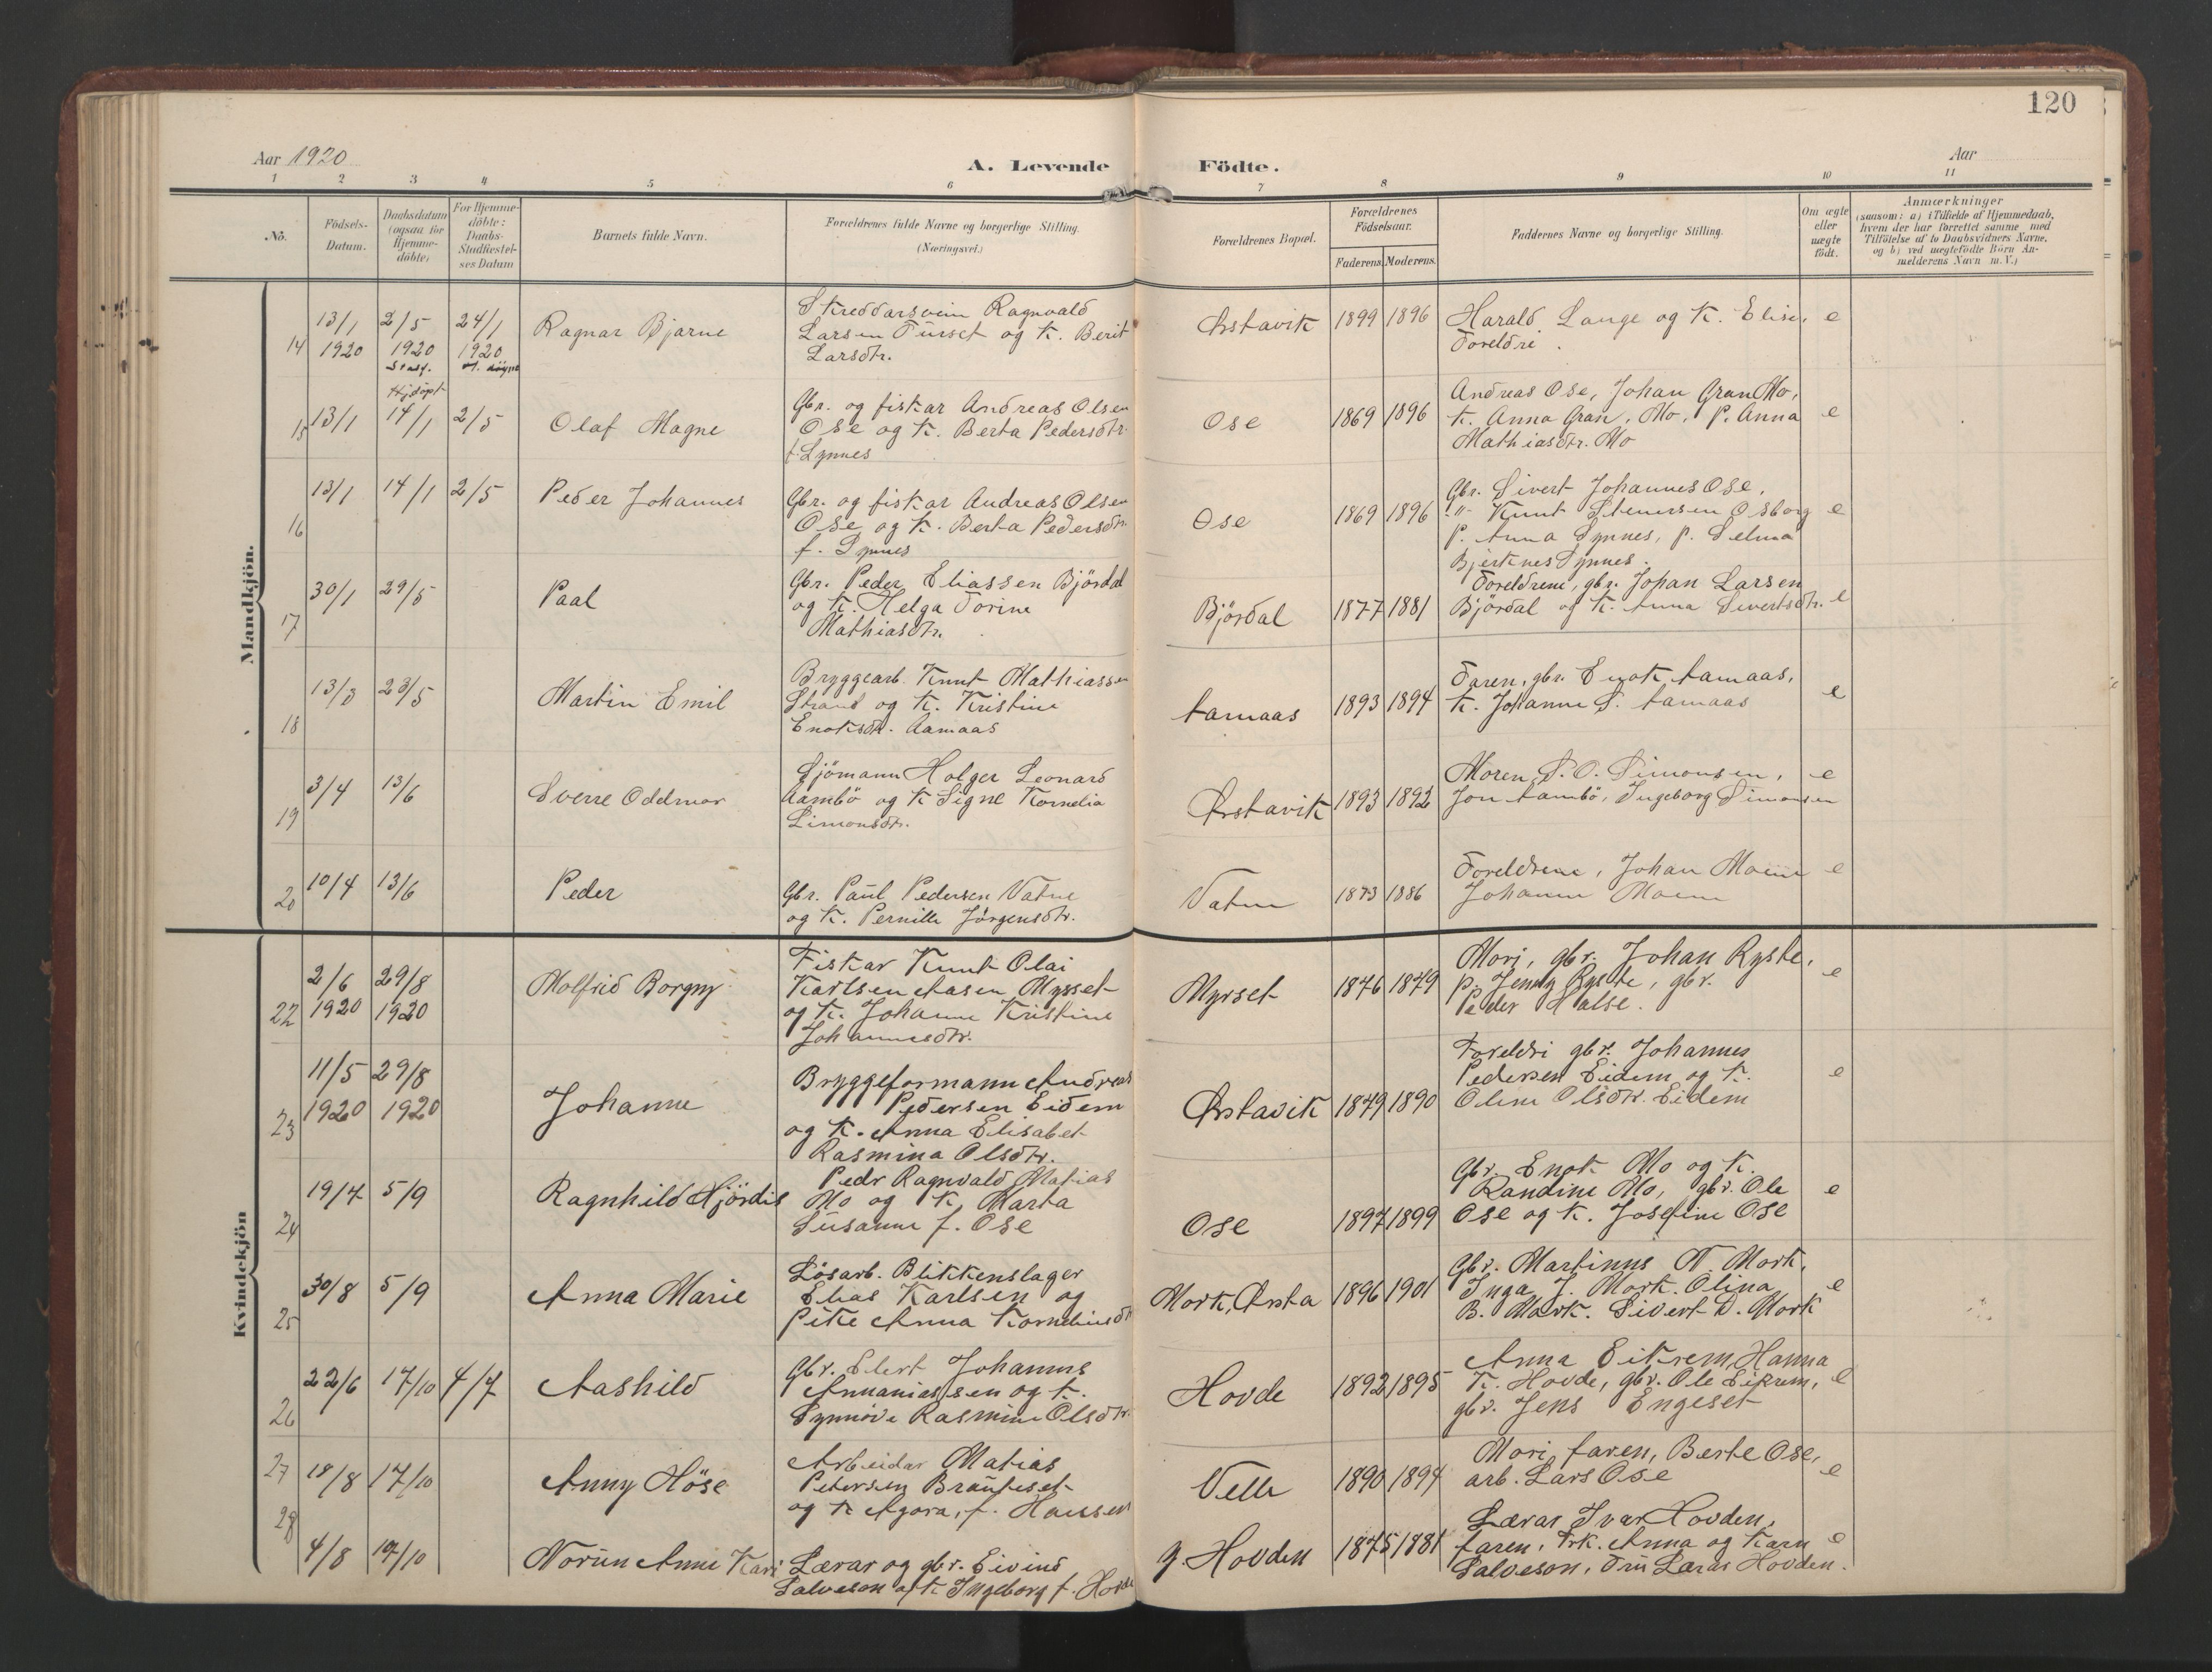 120
Aar 1920
A. Levende Födte.
Aar
1 2 3 4 5 6 7 8 9 10 11
No.
Födsels-
Datum.
Daabsdatum
(ogsaa for
Hjemme-
döbte)
For Hjemme-
döbte:
Daabs-
Stadfæstel-
ses Datum
Barnets fulde Navn.
Forældrenes fulde Navne og borgerlige Stilling.
(Næringsvei.)
Forældrenes Bopæl.
Forældrenes
Födselsaar.
Faderens. Moderens.
Faddernes Navne og borgerlige Stilling.
Om ægte
eller
uægte
födt.
Anmærkninger
(saasom: a) i Tilfælde af Hjemmedaab,
hvem der har forrettet samme med
Tilföielse af to Daabsvidners Navne,
og b) ved uægtefödte Börn An-
melderens Navn m. V.)
Mandkjön.
14 13/1 1920 2/5 1920 Stadf. 24/1 1920
Ragnar Bjarne
Skreddarsvein Ragnvald
Larsen Furset og k. Berit
Larsdtr.
Ørstavik 1899 1896
Harald Lange og k. Elise, e
Foreldre.
15 13/1 Hjdöpt 14/1 2/5
Olaf Magne
Gbr. og fiskar Andreas Olsen
Ose og k. Berta Pedersdtr
f. Synnes
Ose 1869 1896
Andreas Ose, Johan Gran Mo,
k. Anna Gran, Mo, p. Anna e
Mathiasdtr. Mo
16 13/1 14/1 2/5
Peder Johannes
Gbr. og fiskar Andreas Olsen
Ose og k. Berta Pedersdtr.
f. Synnes
Ose 1869 1896
Gbr. Sivert Johannes Ose,
-"- Knut Stenersen Osborg e
p. Anna Synnes, p. Selma
Bjerknes Synnes.
17 30/1 29/5
Paal
Gbr. Peder Eliassen Björdal
og k. Helga Torine
Mathiasdtr.
Björdal 1877 1881
Foreldrene, gbr. Johan Larsen
Björdal og k. Anna Sivertsdtr. e
18 13/3 23/5
Martin Emil
Bryggearb. Knut Mathiassen
Strand og k. Kristine
Enoksdtr. Aamaas
Aamaas 1893 1894
Faren, gbr. Enok Aamaas,
k. Johanne S. Aamaas e
19 3/4 13/6
Sverre Oddmar
Sjömann Holger Leonard
Aambö og k Signe Kornelia
Simonsdtr.
Ørstavik 1893 1892
Moren, S. O. Simonsen, e
Jon Aambö, Ingeborg Simonsen
20 10/4 13/6
Peder
Gbr. Paul Pedersen Vatne
og k. Pernille Jörgensdtr.
Vatne 1873 1886
Foreldrene, Johan Moene e
Johanne Moene
Kvindekjön
22 2/6 1920 29/8 1920
Molfrid Borgny
Fiskar Knut Olai
Karlsen Aasen Mysset
og k. Johanne Kristine
Johannesdtr.
Myrset 1876 1879
Mori, gbr. Johan Ryste,
p. Jenny Ryste, gbr. e
Peder Halse.
23 11/5 1920 29/8 1920
Johanne
Bryggeformann Andreas
Pedersen Eidem
og k. Anna Elisabet
Rasmina Olsdtr.
Ørstavik 1879 1890
Foreldri gbr. Johannes
Pedersen Eidem og k. e
Oline Olsdtr. Eidem
24 19/7 5/9
Ragnhild Hjördis
Pedr Ragnvald Matias
Mo og k Marta
Susanne f. Ose
Ose 1897 1899
Gbr. Enok Mo og k.
Randine Mo, gbr. Ole e
Ose og k. Josefine Ose
25 30/8 5/9
Anna Marie
Lösarb. Blikkenslager
Elias Karlsen og
Pike Anna Korneliusdtr
Mork, Ørsta 1896 1901
Gbr. Martinus N. Mork,
Inga J. Mork. Olina e
B. Mork. Sivert D. Mork
26 22/6 17/10 4/7
Aashild
Gbr. Elert Johannes
Annaniassen og k.
Synnöve Rasmine Olsdtr.
Hovde 1892 1895
Anna Eikrem, Hanna
K. Hovde, gbr. Ole Eikrem, e
gbr. Jens Engeset
27 18/8 17/10
Anny Höse
Arbeidar Matias
Petersen Brauteset
og k Agora, f. Hansen
Velle 1890 1894
Mori, faren, Berte Ose,
arb. Lars Ose e
28 4/8 17/10
Norun Anne Kari
Lærar og gbr. Eivind
Salveson og k Ingeborg f. Hovde
g. Hovden 1875 1881
Lærar Ivar Hovden,
faren, Frk. Anna og Karn e
Salveson, Fru Lærar Hovden.